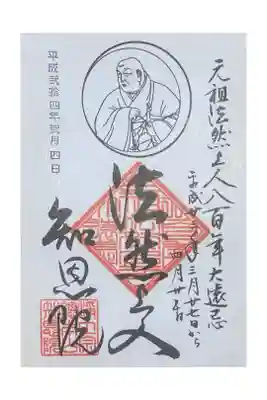 元祖法然上人八百年大遠忌
平成廿三年三月廿七日から
四月廿五日
法然上人
知恩院
平成弐拾四年弐月四日